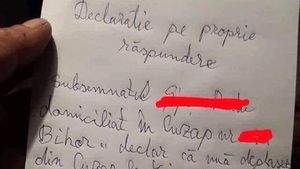 Declaratie pe proprie
răspundere
Subsemnatul
domiciliat în Cuzap nr
Bihor" declar că mă deplasez
din Cuzap